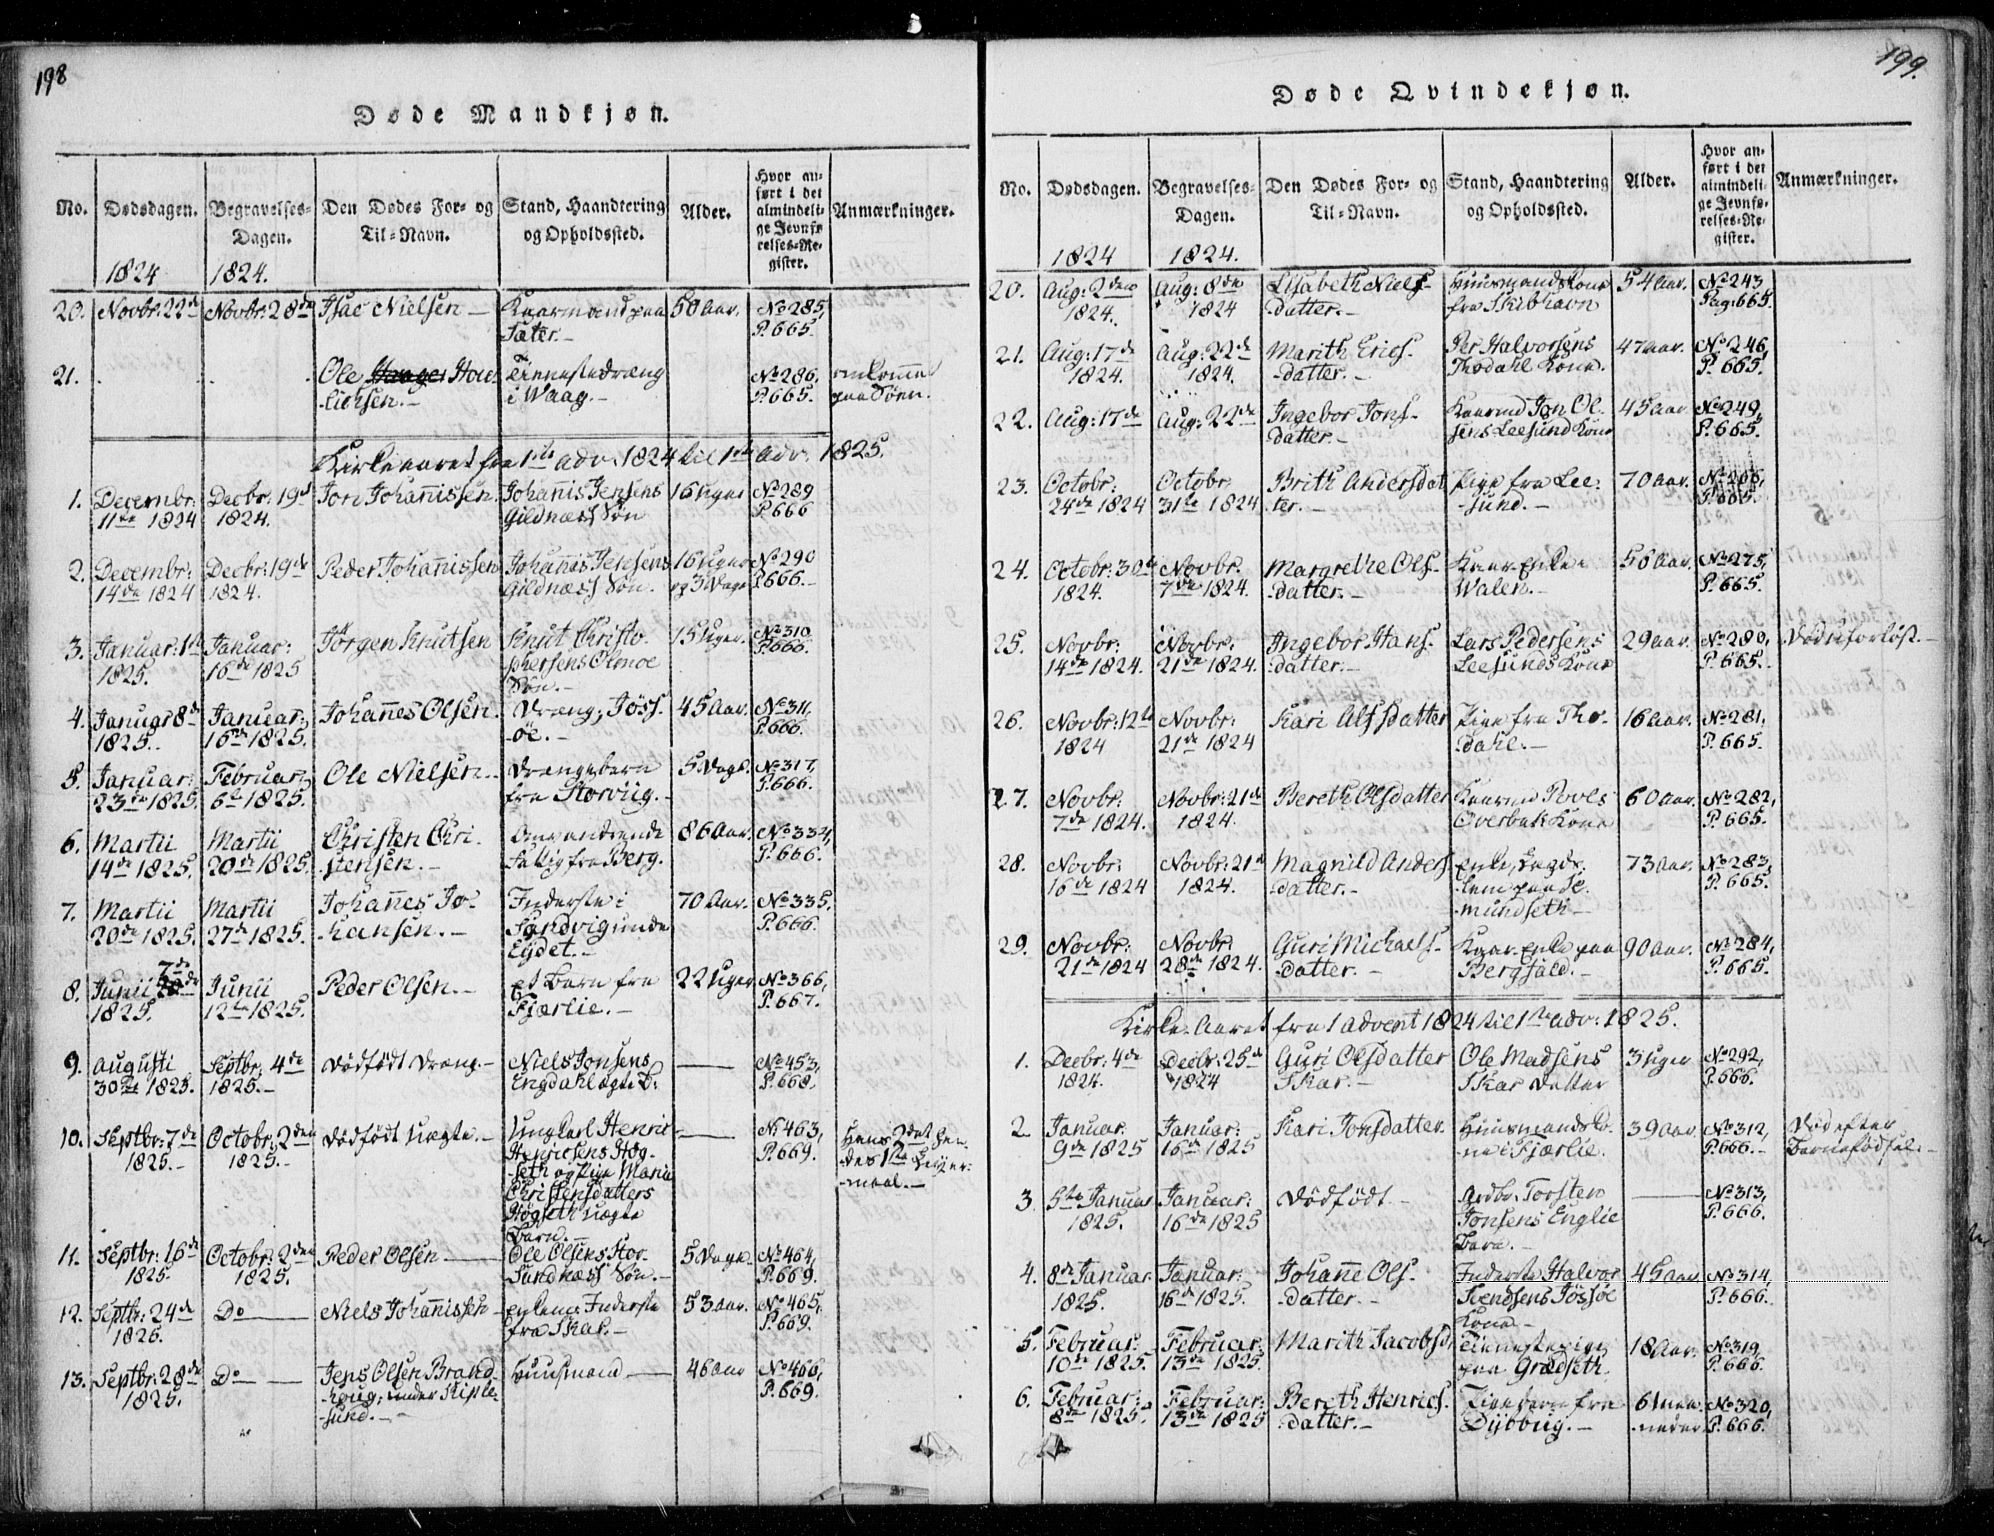 198
Døde Mandkjøn.
No.
Dødsdagen.
Begravelses-
Dagen.
Den Dødes For- og
Til-Navn.
Stand, Haandtering
og Opholdssted.
Alder.
Hvor an-
ført i det
almindeli-
ge Jevnfø-
relses-Re-
gister.
Anmærkninger.
1824
1824.
20. Novbr: 22de Novbr: 28de Isac Nielsen — Kaarmand paa 50 Aar. No 285,
Sæter.— P. 665.
21. Ole Haagen How- Tienestedræng No 286, omkomme
-lichsen.— i Waag.— P. 665. paa Søen.
Kirkeaaret fra 1ste Adv: 1824 til 1ste Adv: 1825.
1. Decembr: Decbr: 19de Jon Johannissen. Johannis Jensens 16 Uger No 289
11te 1824 1824. Gildnæss Søn P. 666
2. Decembr: Decbr: 19de Peder Johannissen Johannis Jensens 16 Uger No 290
14de 1824 1824. Gildnæss Søn. og 3 Dage P. 666.—
3. Januar: 1ste Januar: Jørgen Knutsen Knut Christo- 15 Uger. No 310
1825. 16de 1825 phersens Olmoe P. 666.
Søn.—
4. Januar 8de Januar: Johannes Olsen. Dreng, Jøss- 45 Aar. No 311,
1825.— 16de 1825. -øe.— P. 666.
5. Januar: Februar: Ole Nielsen.— Drengebarn 5 Dage. No 317,
23de 1825. 6te 1825. fra Storviig.— P. 666.
6. Martii Martii Christen Chri- Omvandrende 86 Aar. No 334,
14de 1825. 20de 1825. stensen.— Fattig fra Berg. P. 666.
7. Martii Martii Johannes Jo- Inderste i 70 Aar. No 335,
20de 1825. 27de 1825. hansen.— Sandvig unde P. 666.
Eydet.—
7de
8. Junii Junii Peder Olsen.— et Barn fra 22 Uger No 366,
1825. 12te 1825. Fjærlie.— P. 667.
9. Augusti Septbr: 4de Dødfødt Dreng.— Niels Jonsens — No 453,
30te 1825. 1825.— Engdahl ægte B: P. 668.
10. Septbr: 7de Octobr: 2den Dødfødt uægte.— Ungkarl Henric — No 463, Hans 2det hen-
1825.— 1825.— Henricsens Høg- P. 669. des 1ste Leyer-
-seth og Pige Maria -maal.—
Christensdatters
Høgseth uægte
Barn.—
11. Septbr: 16de Octobr: 2den Peder Olsen — Ole Olsens Stor- 5 Dage. No 464,
1825. 1825. Sandnæss Søn.— P. 669.
12. Septbr: 24de Do — Niels Johannissen — Inderste 53 Aar. No 465,
1825. fra Skar.— P. 669.
13. Septbr: 28de Do — Jens Olsen Brand- Huusmand — 46 Aar No 466,
1825. -houg, under P. 669.
-sund.—
199.
Døde Qvindekjøn.
No.
Dødsdagen.
Begravelses-
Dagen.
Den Dødes For- og
Til-Navn.
Stand, Haandtering
og Opholdssted.
Alder.
Hvor an-
ført i det
almindeli-
ge Jevnfø-
relses-Re-
gister.
Anmærkninger.
1824
1824.
20. Aug: 2den Aug: 8de Lisabeth Niels- Huusmands Kone 54 Aar. No 243
1824. 1824 datter.— fra Skibhavn Pag: 665.
21. Aug: 17de Aug: 22de Marith Erics- Per Halvorsens 47 Aar. No 246,
1824. 1824. -datter.— Thodahl Kone. P. 665.
22. Aug: 17de Aug: 22de Ingebor Jons- Kaarmd Jon Ol- 45 Aar. No 249,
datter.— sens Leesund Kone P. 665.
23. Octobr: Octobr. Brith Andersdat Pige fra Lee- 70 Aar. No 266,
24de 1824 31te 1824 ter.— -sund.— P. 665.
24. Octobr: 30te Novbr. Margrethe Ols- Kaar Enke 56 Aar. No 275,
1824. 7de 1824. -datter.— Walen.— P. 665.
25. Novbr: Novbr: Ingebor Hans- Lars Pedersens 29 Aar. No 280, Død uforløst.—
14de 1824. 21de 1824. datter.— Leesunds Kone P. 665.
26. Novbr: 12te Novbr: Kari Alfsdatter Pige fra Tho- 16 Aar. No 281,
1824 21de 1824 dahl.— P. 665.
27. Novbr. Novbr: 21de Bereth Olsdatter Kaarmd Poves 60 Aar. No 282,
7de 1824. 1824. Overbak Kone P. 665.
28. Novbr: Novbr: 21de Magnild Anders- Enke, Lægds- 73 Aar. No 283,
16de 1824 1824. datter.— lem paa Se- P. 665.
-mundseth—
29. Novbr: Novbr: Guri Michaels- Kaar Enke paa 90 Aar. No 284,
21de 1824 28de 1824. datter.— Bergfald.— P. 665.
Kirke Aaret fra 1 Advent 1824 til 1ste Adv: 1825.
1. Decbr: 4de Decbr: 25de Guri Olsdatter Ole Madsens 3 Uger No 292,
1824. 1824 Skar.— Skar Datter P. 666.
2. Januar. Januar: Kari Jonsdatter. Huusmands Ko- 39 Aar. No 312, Død efter
9de 1825 16de 1825 ne i Fjærlie. P. 666.— Barnefødsel.—
3. 5te Januar Januar: Dødfødt— Grdbr. Torsten — No 313,
1825. 16de 1825 Jonsens Englie P. 666.
Barn.—
4. 8de Januar. Januar: Johanne Ols- Inderste Halvor 45 Aar No 314,
1825. 16de 1825. -datter.— Svendsens Jössöe P. 666.
Kone—
5. Februar: Februar: Marith Jacobsd. Tienestepige 18 Aar. No 319,
10de 1825. 13de 1825. paa Grædseth. P. 666.
6. Februar: Februar: Bereth Henrics- Pigebarn fra 6 Maa- No 320,
8de 1825. 13de 1825 datter.— Dybbug.— neder P. 666.